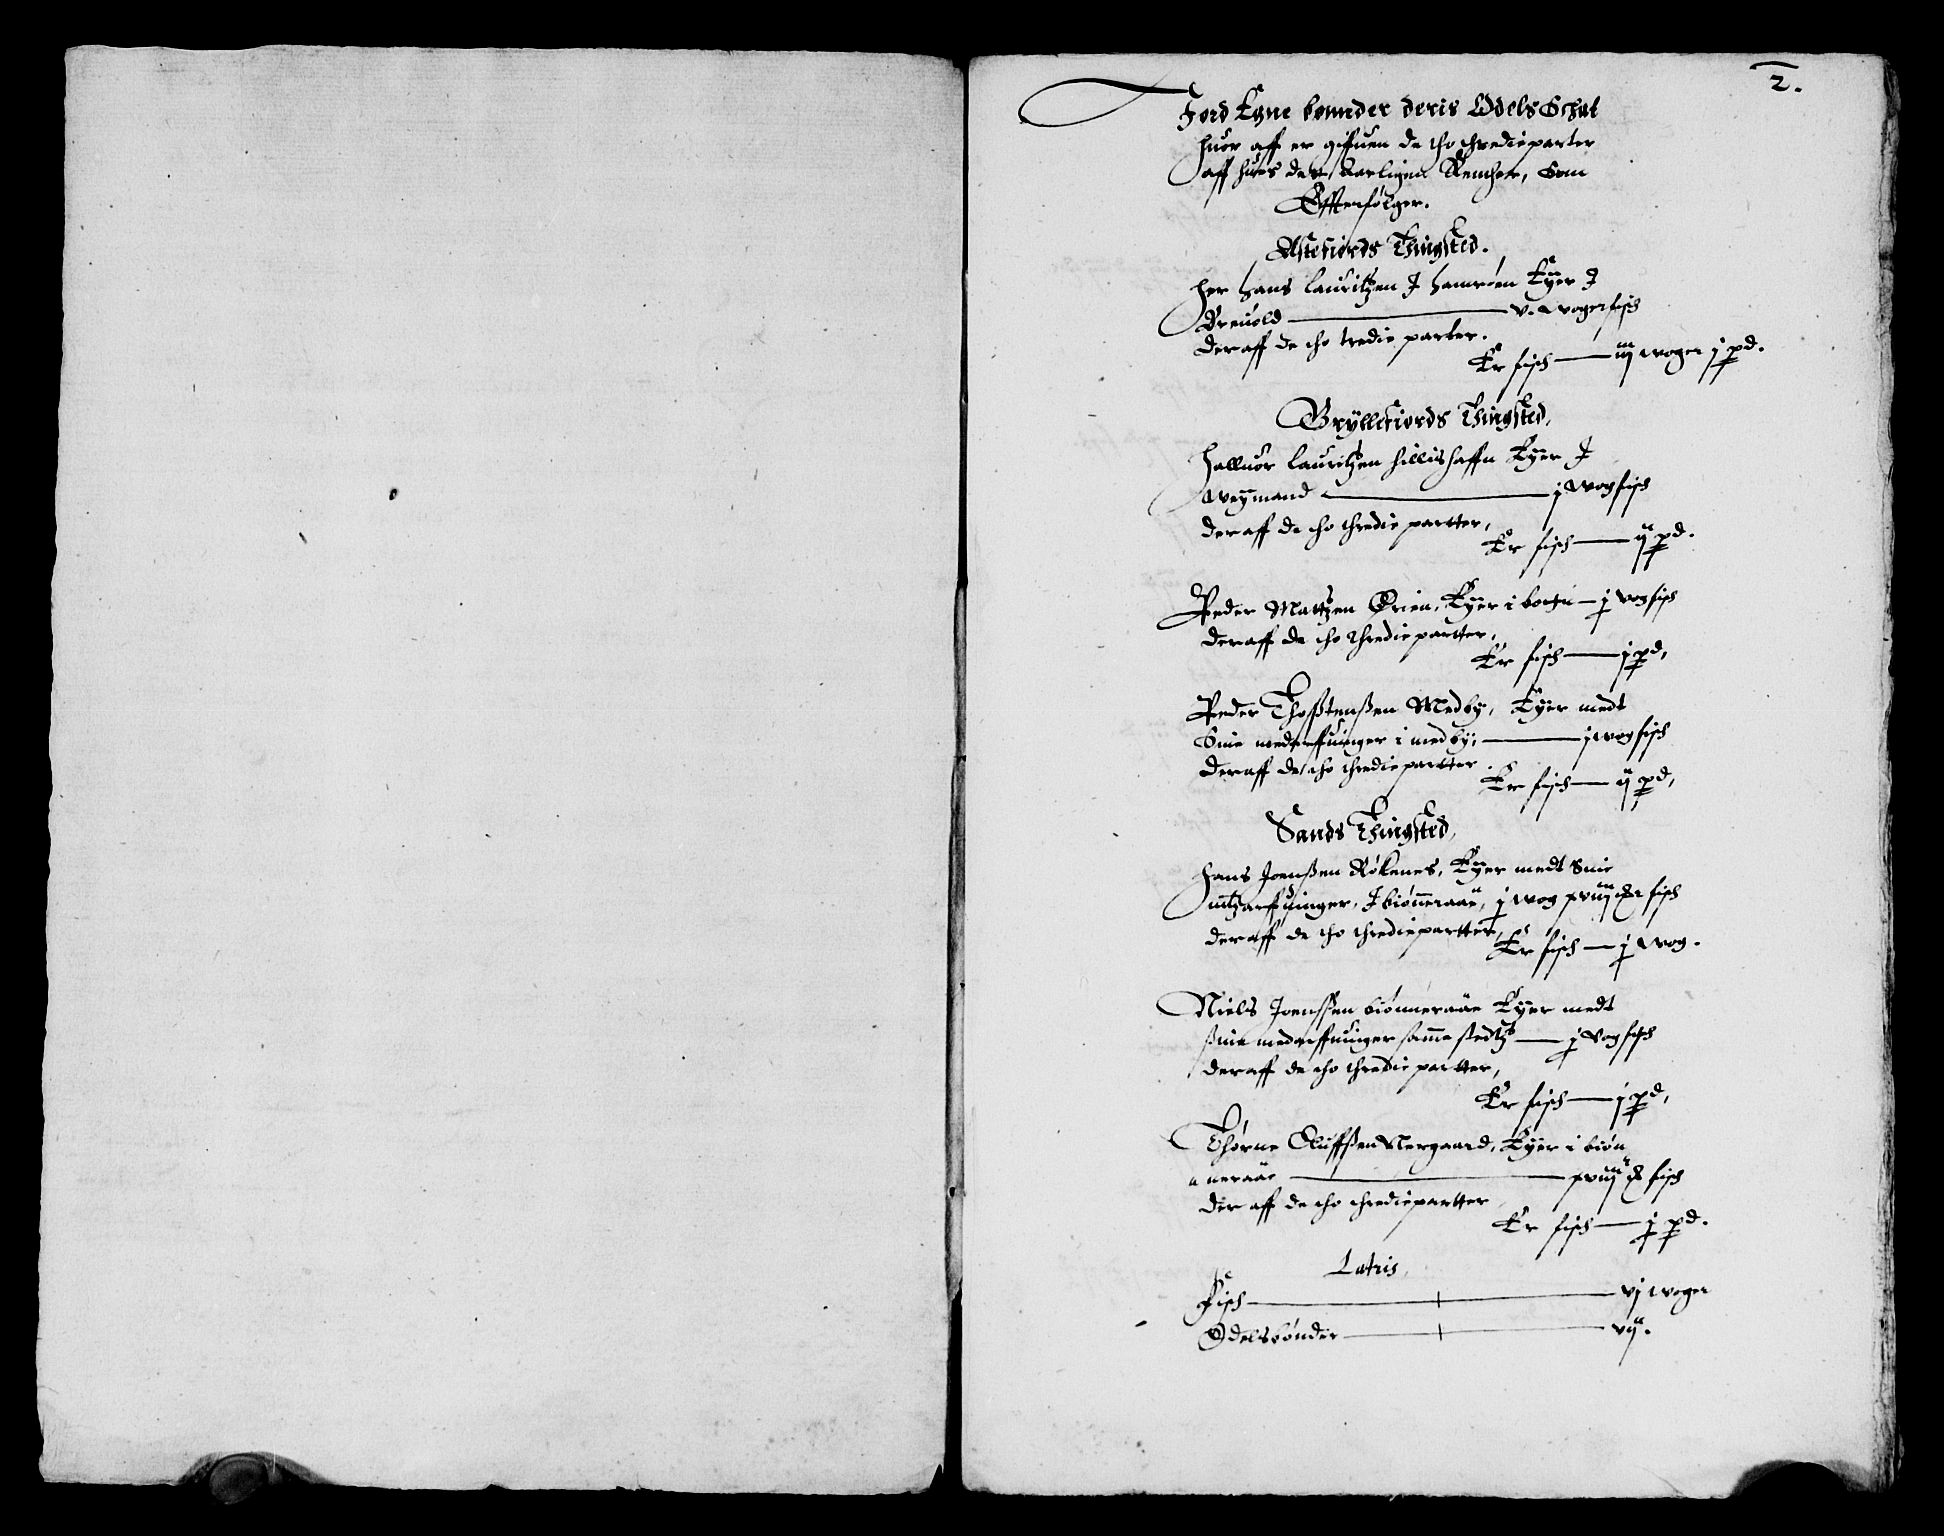 2.
Jord Egne bønder deris Odels Schat
huor aff er giffuen de tho thredieparter
aff hues der aarligen Rencher, Som
Effterfølger.
Astefiords Thingsted.
Her Hans Lauritzen J Hamrøen Eyer J
Dreuold — v. woger fisch
deraff de tho tredie parter.
Er fisch — iij woger j pd.
Gryllefiords Thingsted,
Halluor Lauritzen hillishaffn Eyer J
Weymand — j wog fisch
deraff de tho thredie partter,
Er fisch — ij pd.
Peder Mattzen Ørien, Eyer i botn — j wog fisch
deraff de tho thredie partter,
Er fisch — j pd,
Peder Thostenßen Medby, Eyer medt
Sine medarffuinger i medby, — j wog fisch
deraff de tho thredie partter
Er fisch — ij pd,
Sands Thingsted,
Hans Joenßen Røkenes, Eyer medt Sine
mettarffuinger, J biønneraae, j wog xviij fisch
deraff de tho thredie partter,
Er fisch — j wog.
Niels Joenssen biønneraae Eyer medt
ßine medarffuinger samme stedtz — j wog fisch
deraff de tho thredie partter,
Er fisch — j pd,
Thørne Oluffßen Nergaard, Eyer i biøn
neraae — xviij fisch
der aff de tho thredie partter
Er fisch — j pd.
Latris,
Fisch — vj woger
Odelsbønder — vij.